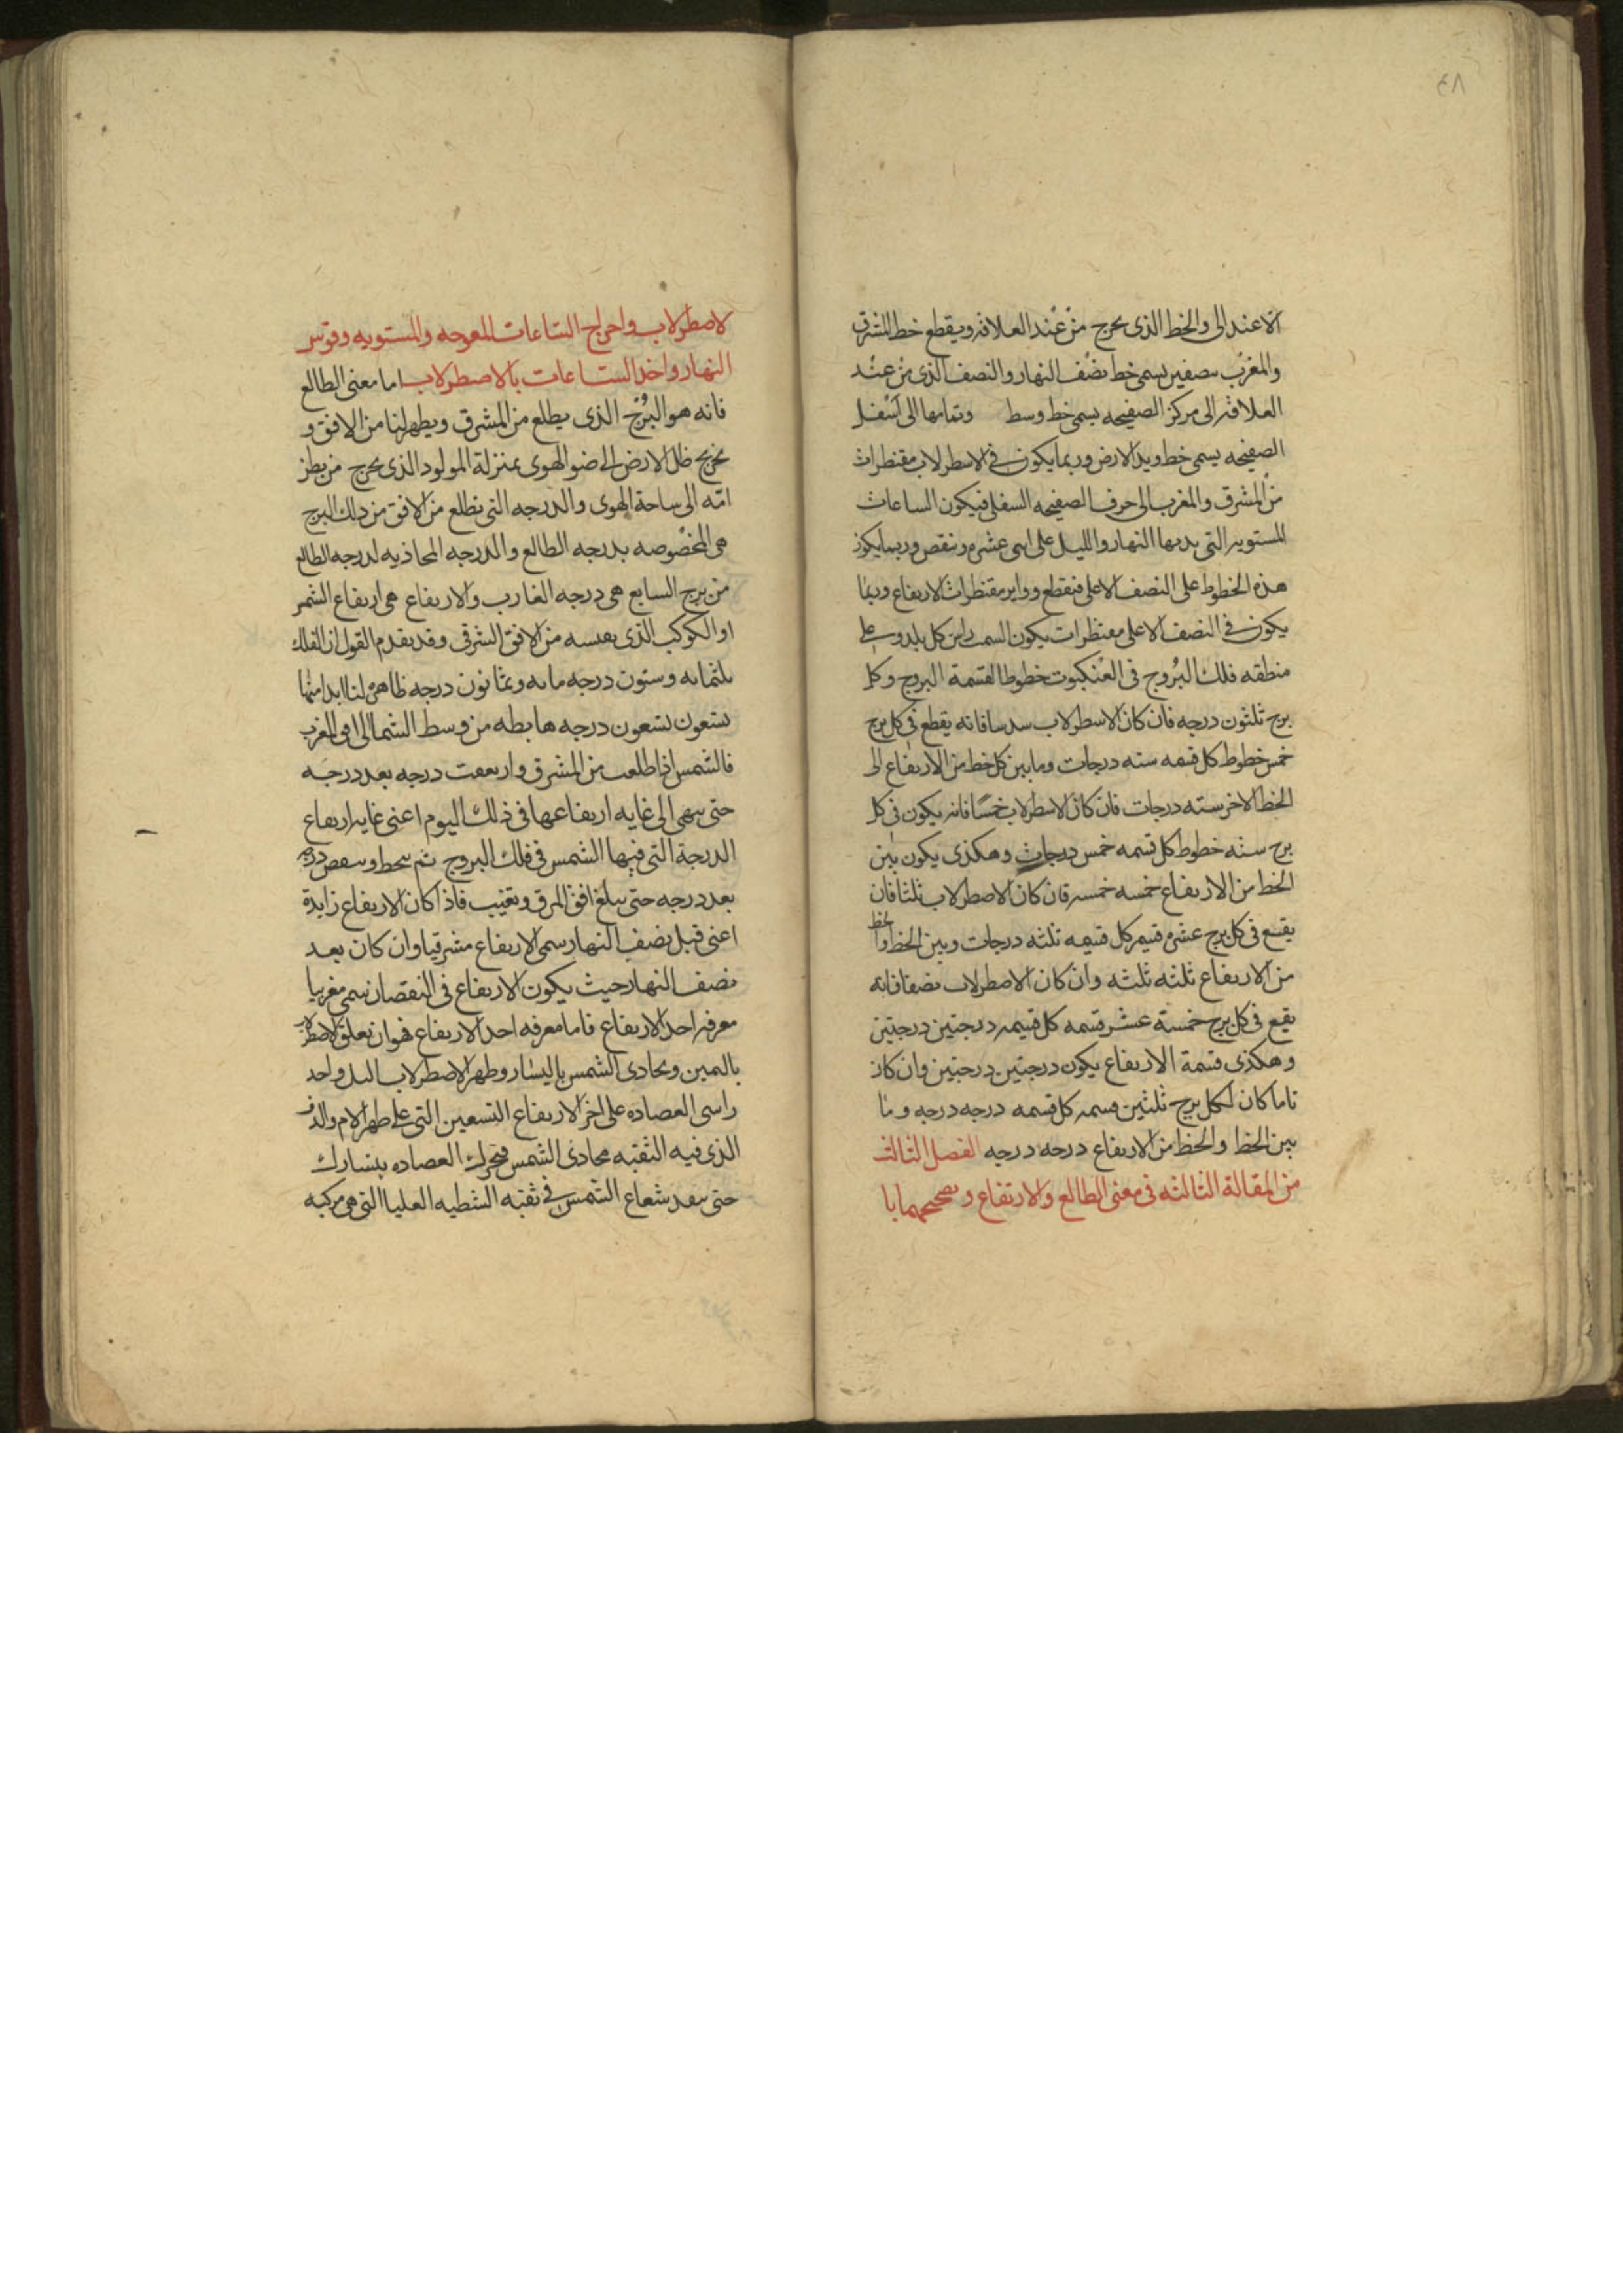 ٨٣
الاعتدالى والخط الذى يخرج من عند العلاقه ويقطع خط المشرق
والمغرب بنصفين يسمى خط نصف النهار والنصف الذى من عند
العلاقه الى مركز الصفيحه يسمى خط وسط وتمامها الى اسفل
الصفيحه يسمى خط وتد الارض وربما يكون فى الاسطرلاب مقنطرات
من المشرق والمغرب الى حرف الصفيحه السفلى فيكون الساعات
المستويه التى بها النهار والليل على اثنى عشره وتنقص وربما يكون
هذه الخطوط على النصف الاعلى فتقطع دواير مقنطرات الارتفاع وربما
يكون فى النصف الاعلى مقنطرات يكون السمت راس كل بلد وعلى
منطقه فلك البروج فى العنكبوت خطوطا لقسمة البروج وكل
برج ثلثون درجه فان كان الاسطرلاب سدسا فانه يقطع فى كل برج
خمس خطوط كل قسمه سته درجات وما بين كل خط من الارتفاع الى
الخط الاخر سته درجات فان كان الاسطرلاب خمسا فانه يكون فى كل
برج سته خطوط كل قسمه خمس درجات وهكذى يكون بين
الخط من الارتفاع خمسه خمسه فان كان الاصطرلاب ثلثا فان
يقع فى كل برج عشره قسم كل قسمه ثلثه درجات وبين الخط والخط
من الارتفاع ثلثه ثلثه وان كان الاصطرلاب نصفا فانه
يقع فى كل برج خمسة عشر قسمه كل قسمه درجتين درجتين
وهكذى قسمة الارتفاع يكون درجتين درجتين وان كان
تاما كان لكل برج ثلثين قسمه كل قسمه درجه درجه وما
بين الخط والخط من الارتفاع درجه درجه الفصل الثالث
من المقالة الثالثه فى معنى الطالع والارتفاع وتصحيحهما با
لاصطرلاب واخراج الساعات المعوجه والمستويه وقوس
النهار واخذ الساعات بالاصطرلاب اما معنى الطالع
فانه هو البرج الذى يطلع من المشرق ويظهر لنا من الافق و
يخرج من ظل الارض الى ضو الهوى بمنزلة المولود الذى يخرج من بطن
امه الى ساحة الهوى والدرجه التى تطلع من الافق من ذلك البرج
هى المخصوصه بدرجه الطالع والدرجه المحاذيه لدرجه الطالع
من برج السابع هى درجه الغارب والارتفاع هى ارتفاع الشمس
او الكوكب الذى تقيسه من الافق الشرقى وقد تقدم القول ان الفلك
ثلثمايه وستون درجه مايه وثمانون درجه ظاهره لنا ابدا منها
تسعون تسعون درجه هابطه من وسط السما الى افق المغرب
فالشمس اذا طلعت من المشرق وارتفعت درجه بعد درجه
حتى ينتهى الى غايه ارتفاعها فى ذلك اليوم اعنى غايه ارتفاع
الدرجة التى فيها الشمس فى فلك البروج ثم ينحط وينقص درجه
بعد درجه حتى يبلغ افق المغرب وتغيب فاذا كان الارتفاع زايدة
اعنى قبل نصف النهار سمى الارتفاع مشرقيا وان كان بعد
نصف النهار حيث يكون الارتفاع فى النقصان سمى مغربيا
معرفه اخذ الارتفاع فاما معرفه اخذ الارتفاع فهو ان تعلق الاصطرلاب
باليمين وتحاذى الشمس باليسار وظهر الاصطرلاب اليك واحد
راسى العضاده على اخر الارتفاع التسعين التى على ظهر الام والدف
الذى فيه الثقبه محاذى الشمس فتحرك العضاده بيسارك
حتى ينفذ شعاع الشمس فى ثقبه الشطيه العليا التى هى مركبه